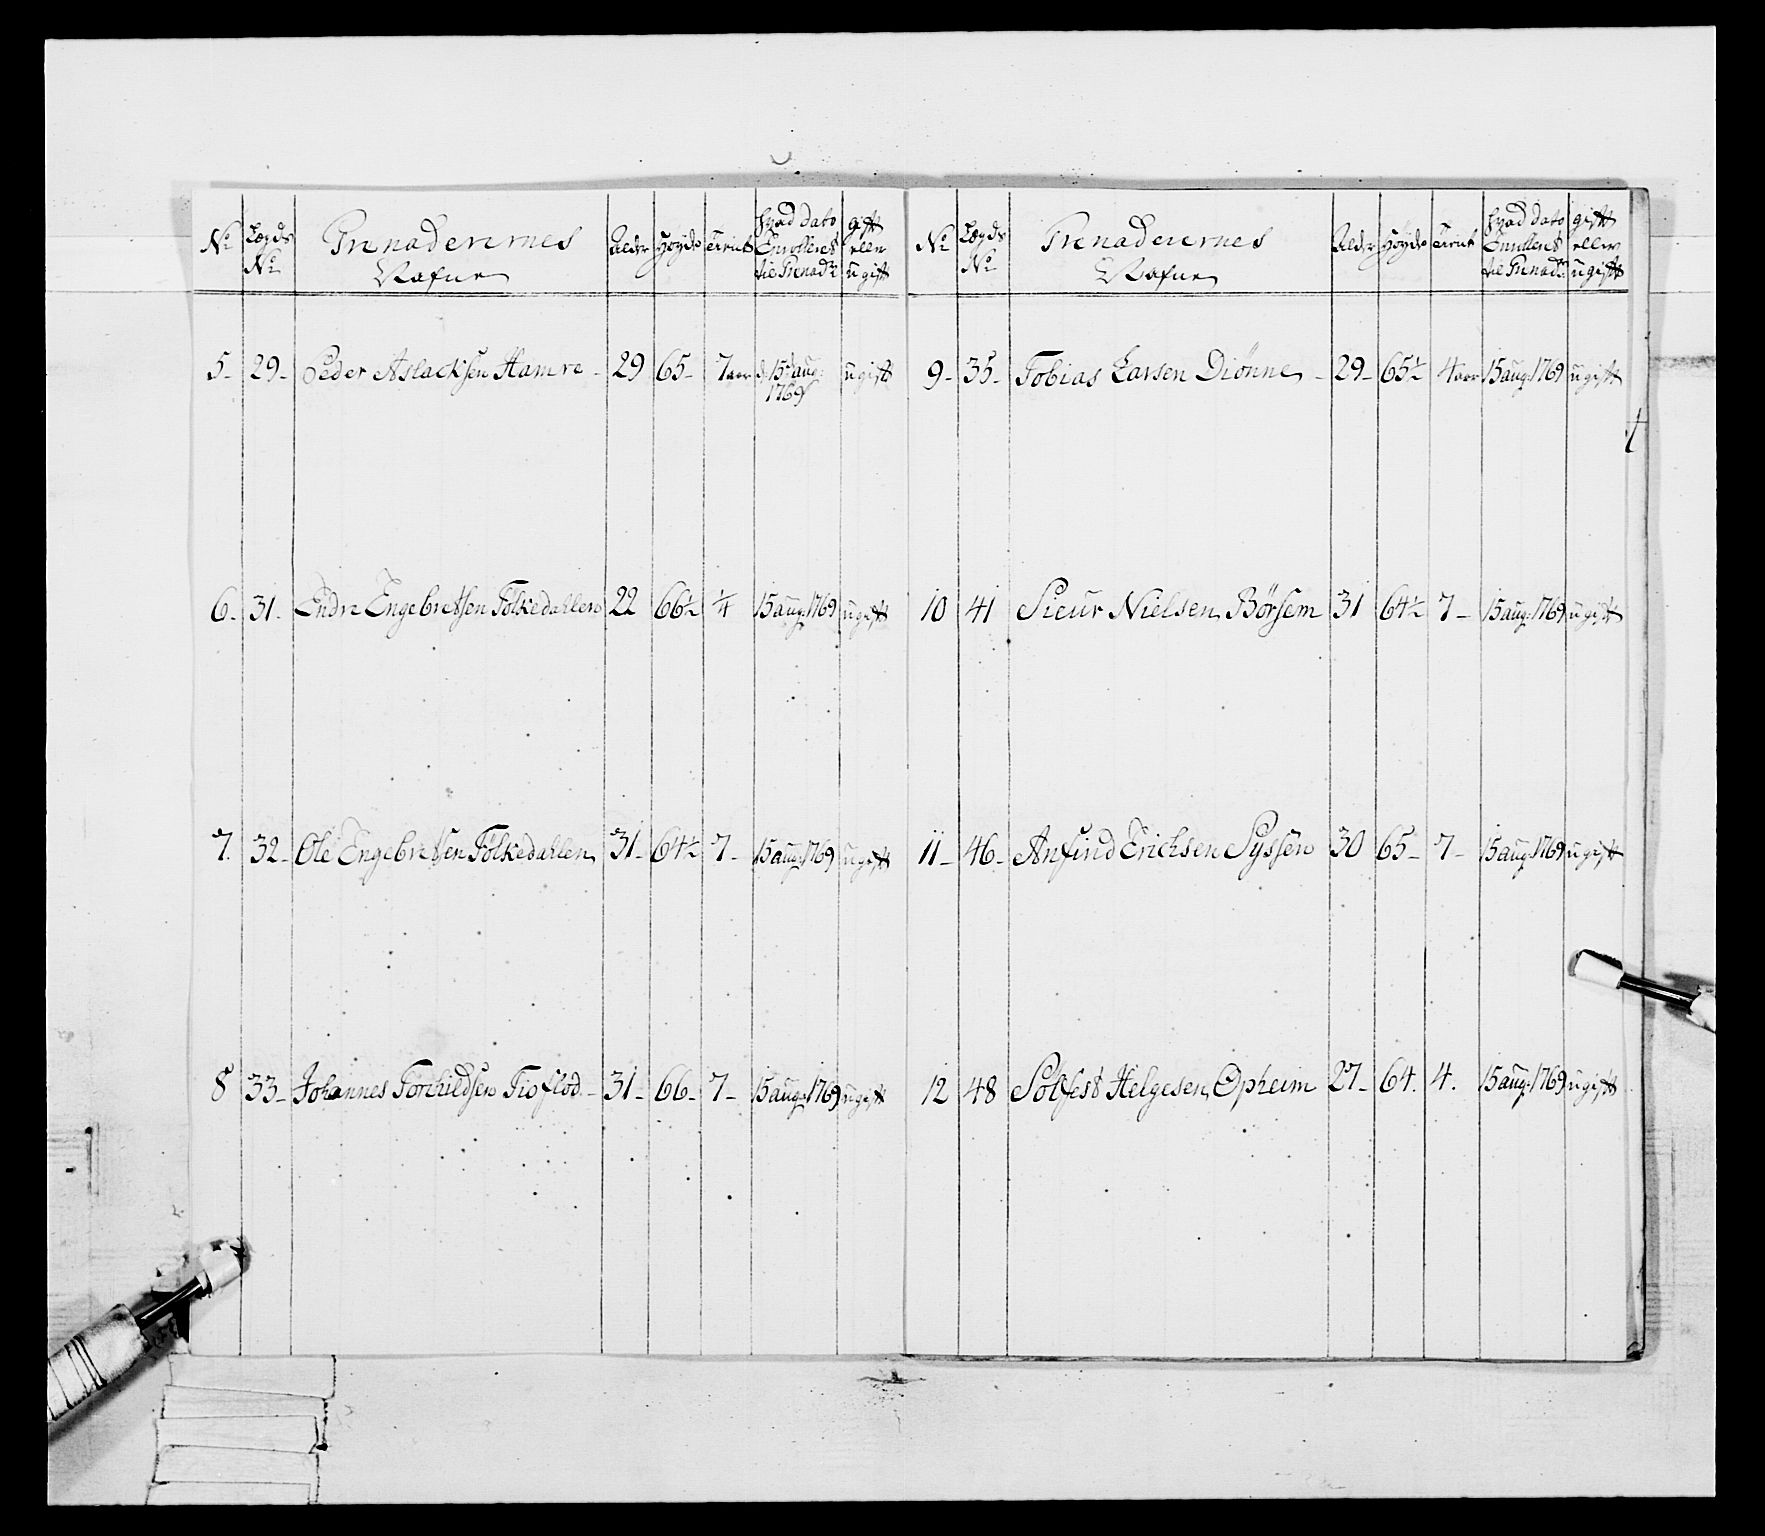 No Lægds No Grenaderernes Nafne Alder Høyde tient hvad dato Enrolleret til Grenadr gift eller ugift
5. 29. Peder Aslachsen Hamre 29 65 7 aar d: 15 aug: 1769 ugift
6. 31. Endre Engebretsen Folkedahlen 22 66½ ¼ 15 aug: 1769 ugift
7. 32. Ole Engebretsen Folkedahlen 31 64½ 7 15 aug: 1769 ugift
8 33 Johannes Torchildsen Tioflod 31 66 7 15 aug: 1769 ugift
No Lægds No Grenaderernes Nafne Alder Høyde tient hvad dato Enrolleret til Grenad: gift eller ugift
9 35 Tobias Larsen Diønne 29 65½ 4 aar 15 aug: 1769 ugift
10 41 Sieur Nielsen Børsem 31 64½ 7 15 aug: 1769 ugift
11 46 Anfind Erichsen Syssen 30 65 7 15 aug: 1769 ugift
12 48 Solfest Helgesen Opheim 27 64. 4. 15 aug: 1769 ugift